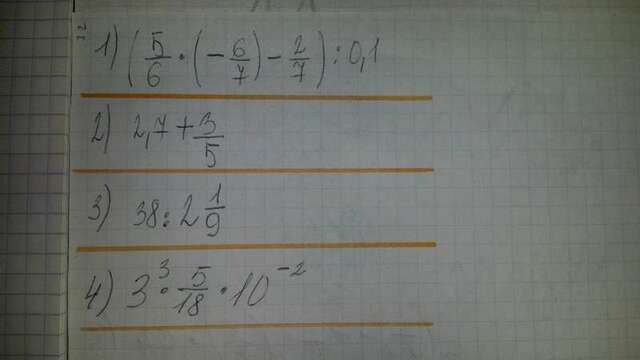 1) (5/6 · (-6/7) - 2/7) : 0,1
2) 2,7 + 3/5
3) 38 : 2 1/9
4) 3³ · 5/18 · 10⁻²